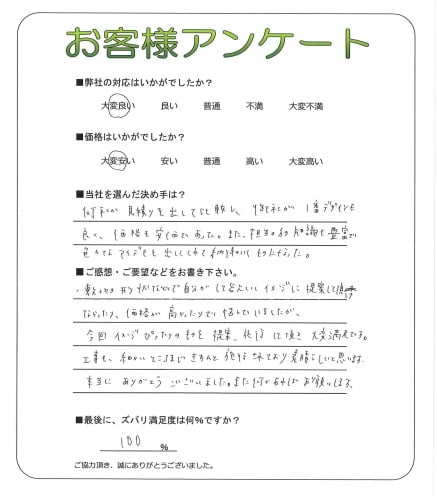 お客様アンケート
■弊社の対応はいかがでしたか？
大変良い 良い 普通 不満 大変不満
■価格はいかがでしたか？
大変安い 安い 普通 高い 大変高い
■当社を選んだ決め手は？
何社か見積りを出してもらい 御社が1番デザインも
良く、価格も安価であった。また、担当の 知識も豊富で
色々なアイデアも出してくれて
■ご感想・ご要望などをお書き下さい。
・敷地の形 状などで自分がしてほしいイメージに提案して頂け
なかったり、価格が高かったりで悩んでいましたが、
今回イメージぴったりのものを提案、施行して頂き大変満足です。
工事も、細かいところまできちんと施行されており素晴らしいと思います。
本当にありがとうございました。また何かあればお願いします。
■最後に、ズバリ満足度は何%ですか？
100 %
ご協力頂き、誠にありがとうございました。